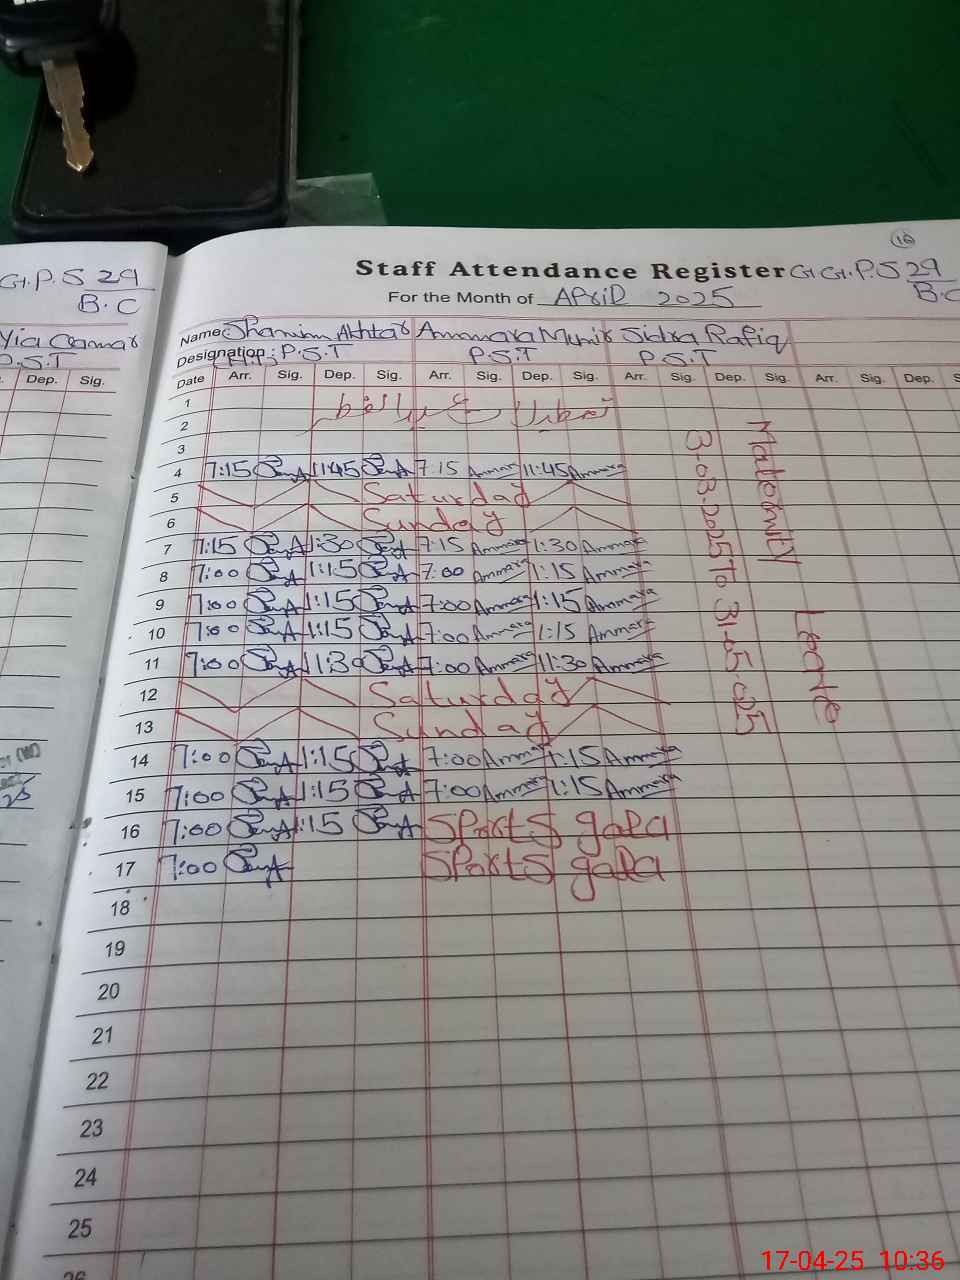 16
Staff Attendance Register G.G.P.S 29 B.C
For the Month of APRIL 2025
G.P.S 29
B.C
Name: Shamim Akhtar Ammara Munir Sidra Rafiq
Designation: P.S.T P.S.T P.S.T
P.S.T
Dep. Sig.
Date Arr. Sig. Dep. Sig. Arr. Sig. Dep. Sig. Arr. Sig. Dep. Sig. Arr. Sig. Dep.
1
2
3
تعطیلات عید الفطر
4 7:15 11:45 7:15 Ammara 11:45 Ammara
5 Saturday
6 Sunday
7 7:15 1:30 7:15 Ammara 1:30 Ammara
8 7:00 1:15 7:00 Ammara 1:15 Ammara
9 7:00 1:15 7:00 Ammara 1:15 Ammara
10 7:00 1:15 7:00 Ammara 1:15 Ammara
11 7:00 11:30 7:00 Ammara 11:30 Ammara
12 Saturday
13 Sunday
14 7:00 1:15 7:00 Ammara 1:15 Ammara
15 7:00 1:15 7:00 Ammara 1:15 Ammara
16 7:00 1:15 Sports gala
17 7:00 Sports gala
18
19
20
21
22
23
24
25
26
Maternity Leave
3.03.2025 To 31.05.025
17-04-25 10:36